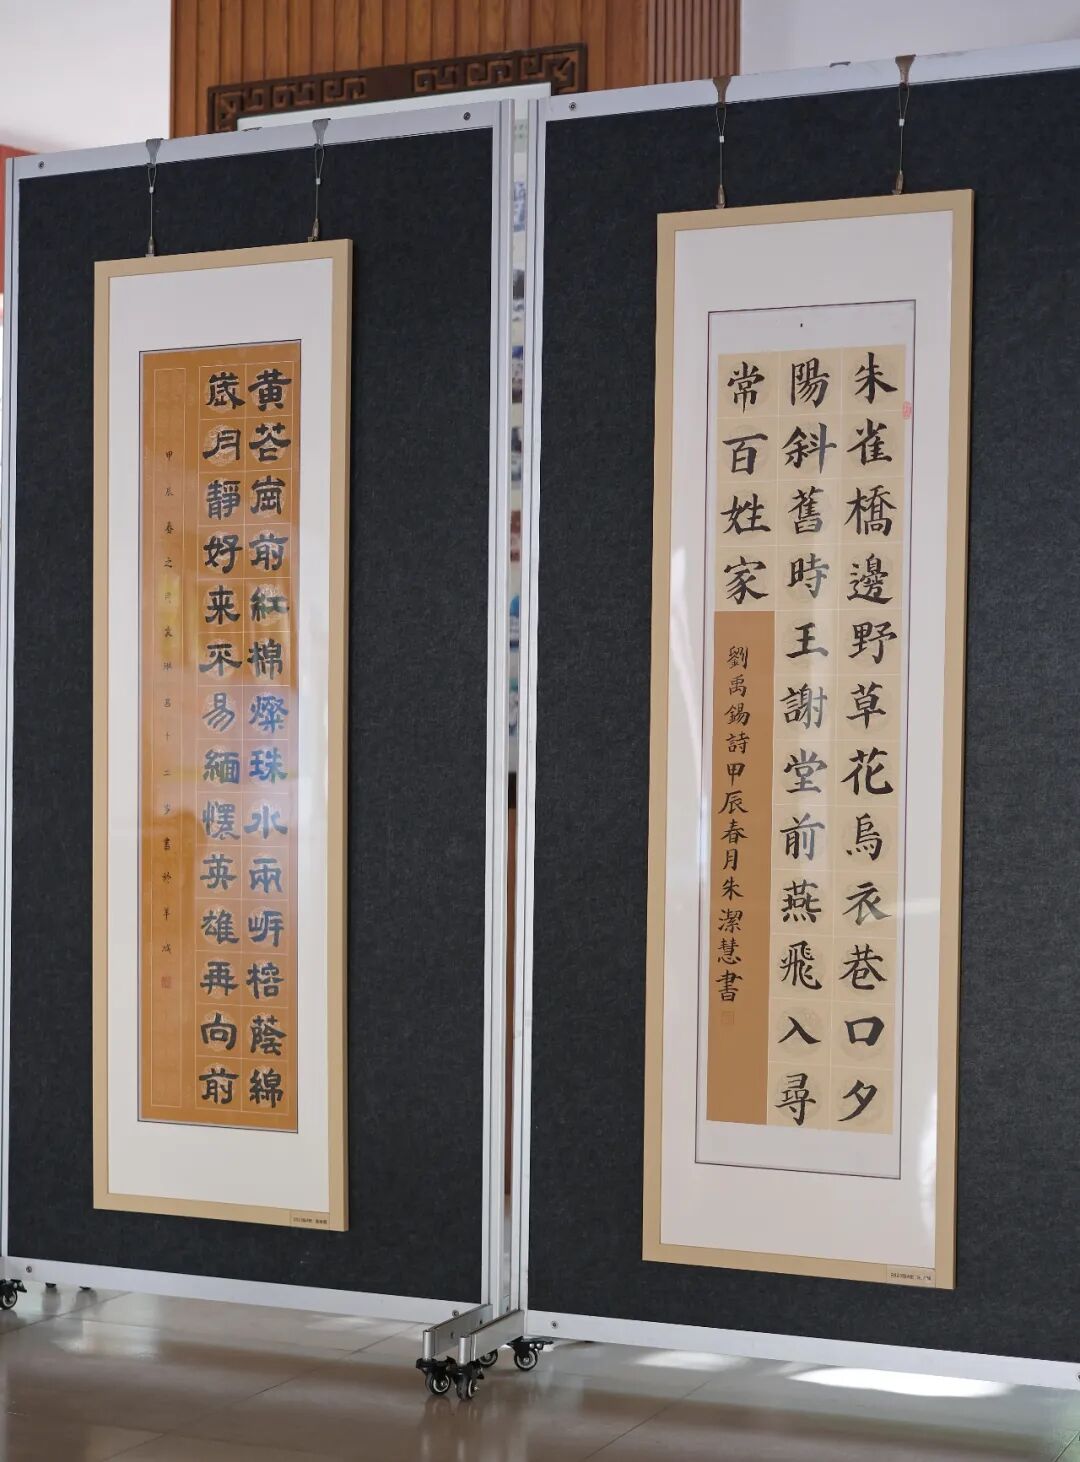 朱雀橋邊野草花烏衣巷口夕
陽斜舊時王謝堂前燕飛入尋
常百姓家
劉禹錫詩甲辰春月朱潔慧書
黃花崗前紅棉燦珠水兩岸榕蔭綿
歲月靜好来不易緬懷英雄再向前
甲辰春之月十二岁書於羊城